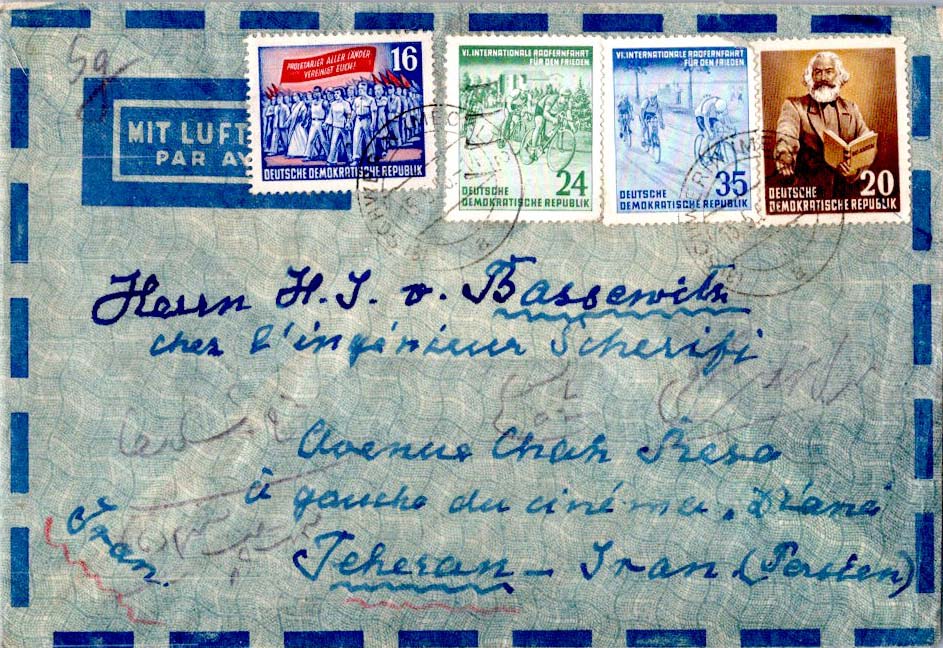 59
MIT LUFT
PAR AV
PROLETARIER ALLER LÄNDER
VEREINIGT EUCH!
16
DEUTSCHE DEMOKRATISCHE REPUBLIK
VI. INTERNATIONALE RADFERNFAHRT
FÜR DEN FRIEDEN
24
DEUTSCHE
DEMOKRATISCHE REPUBLIK
VI. INTERNATIONALE RADFERNFAHRT
FÜR DEN FRIEDEN
35
DEUTSCHE
DEMOKRATISCHE REPUBLIK
20
DEUTSCHE
DEMOKRATISCHE REPUBLIK
SCHWERIN (MECKL)
SCHWERIN (MECKL)
Herrn H. J. v. Bassewitz
chez l'ingénieur Scherifi
Avenue Chah Resa
à gauche du cinéma „Diana
Teheran – Iran (Persien)
Iran.